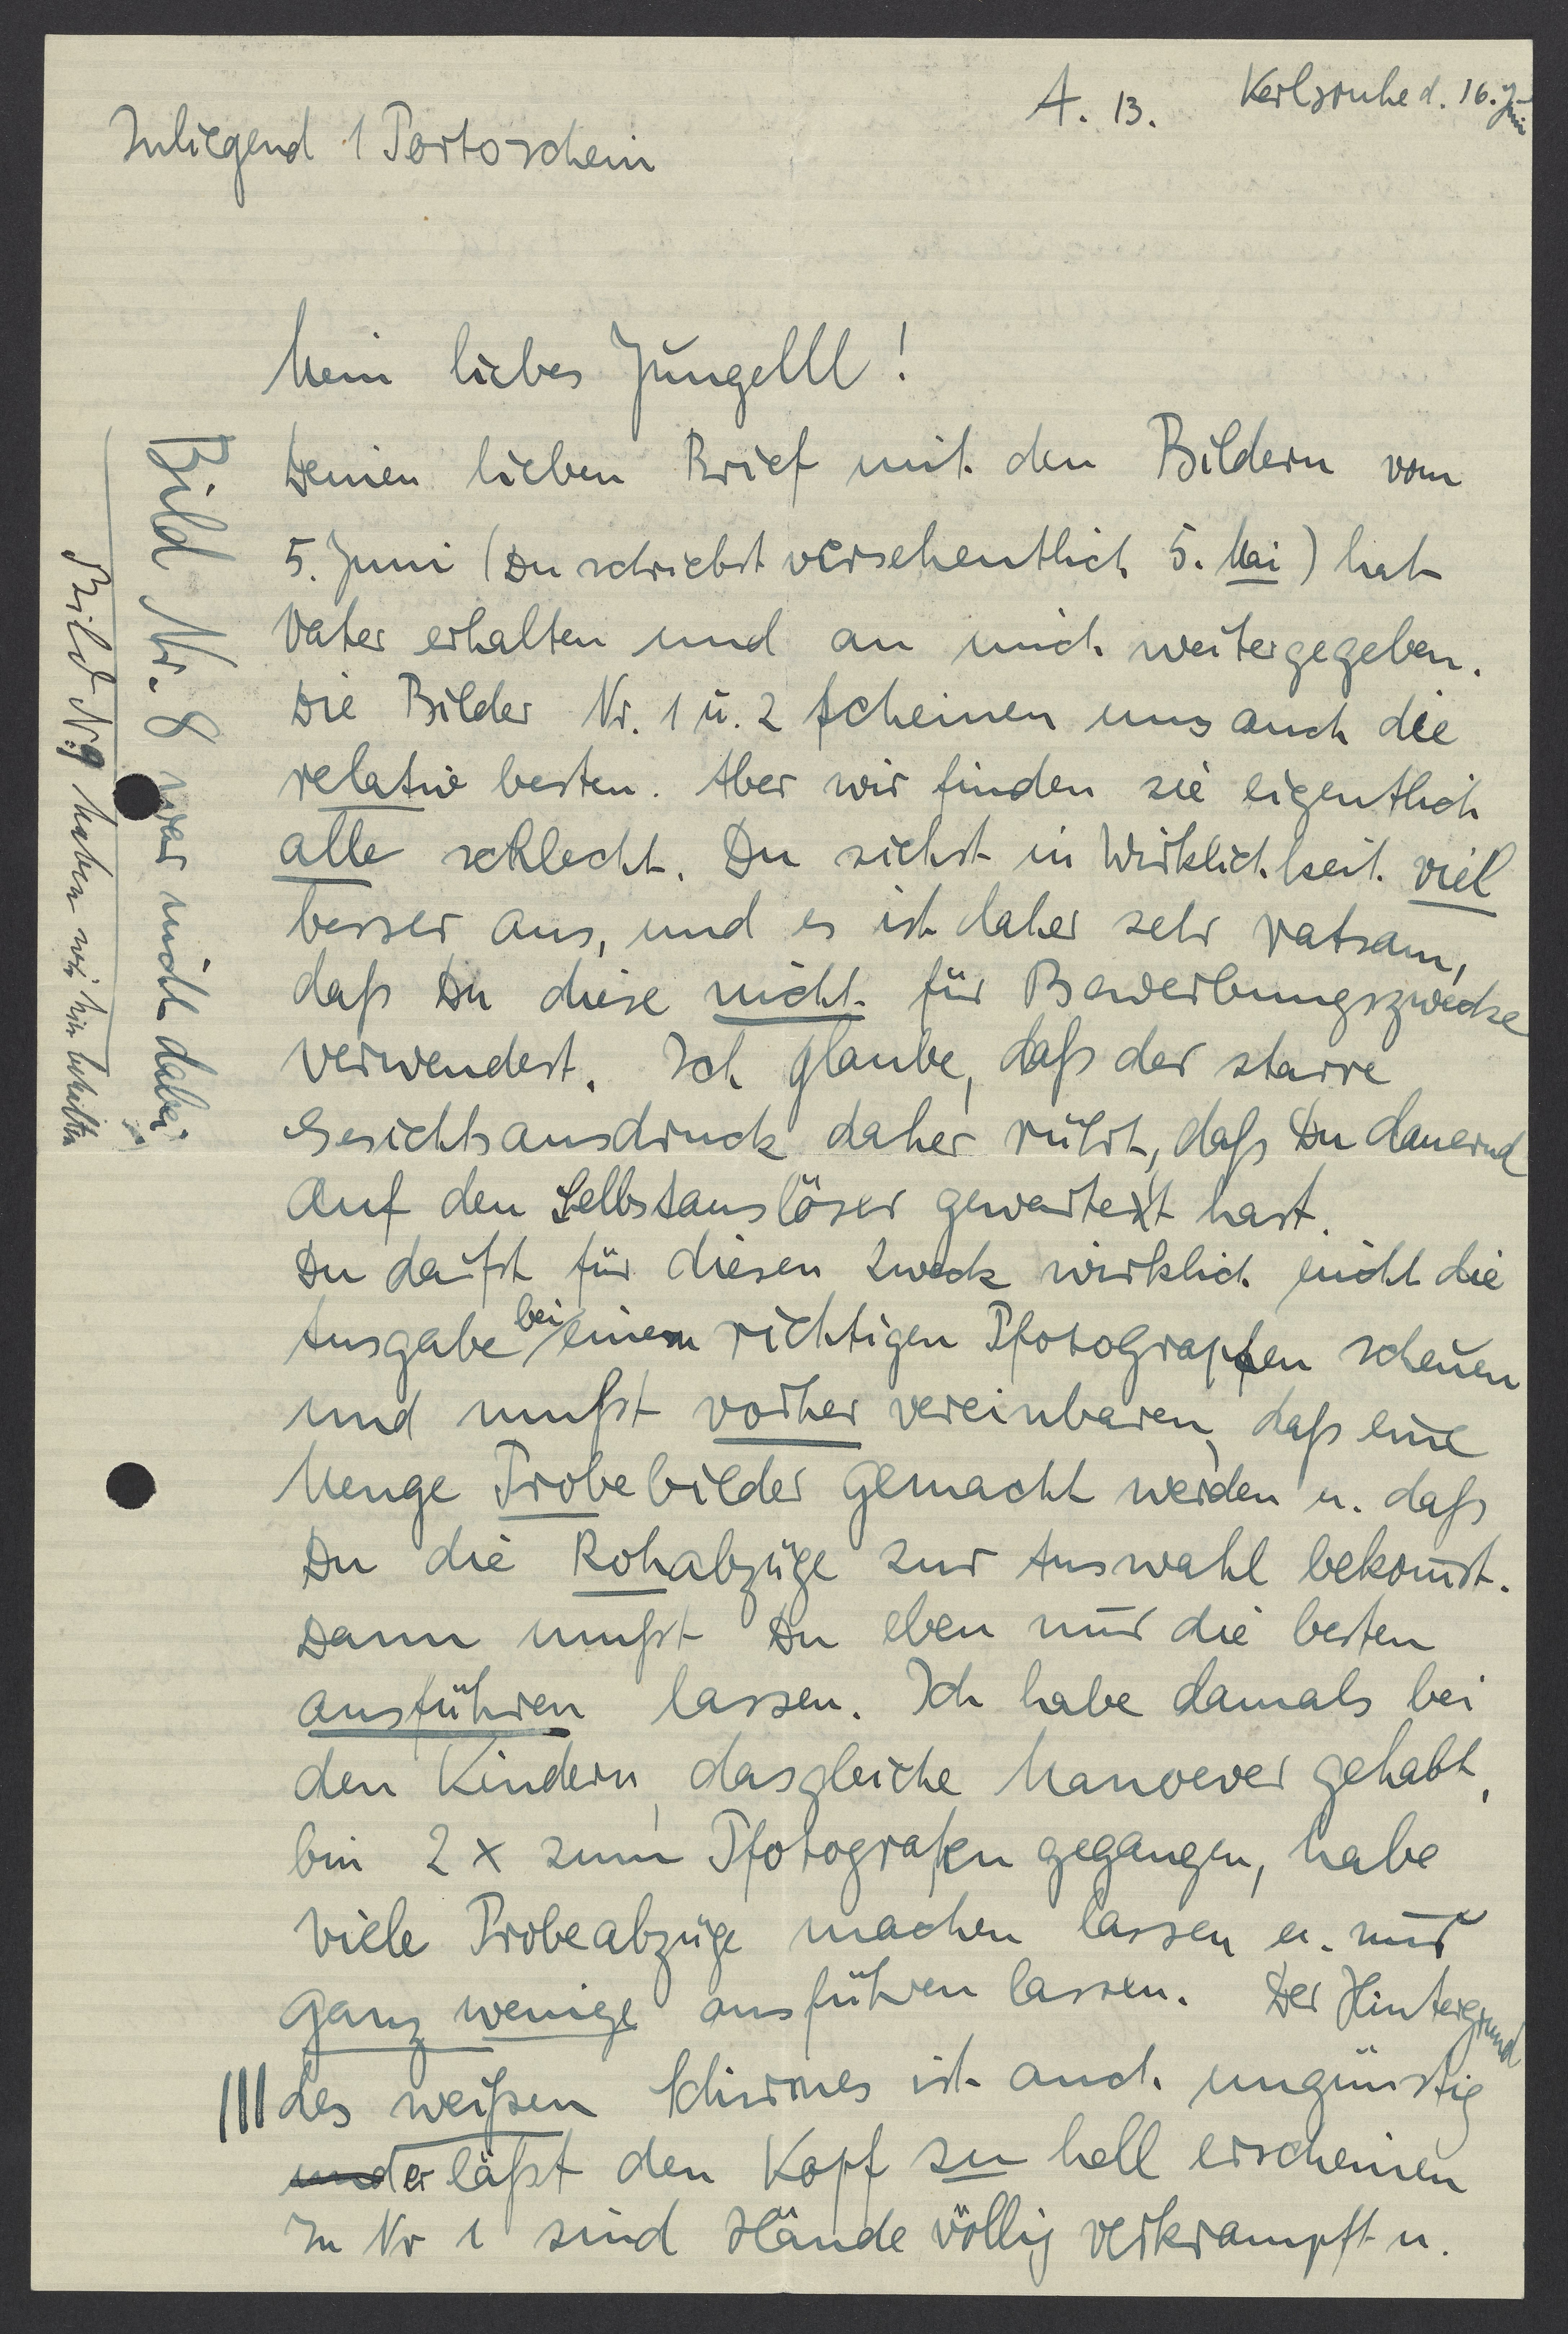 A. 13. Karlsruhe d. 16. Juni
Inliegend 1 Portoschein
Mein liebes Jüngelll!
Deinen lieben Brief mit den Bildern vom
5. Juni (Du schriebst versehentlich 5. Mai) hat
Vater erhalten und an mich weitergegeben.
Die Bilder Nr. 1 u. 2 scheinen uns auch die
relativ besten. Aber wir finden sie eigentlich
alle schlecht. Du siehst in Wirklichkeit viel
besser aus, und es ist daher sehr ratsam,
daß Du diese nicht für Bewerbungszwecke
verwendest. Ich glaube, daß der starre
Gesichtsausdruck daher rührt, daß Du dauernd
auf den Selbstauslöser gewartet hast.
Du darfst für diesen Zweck wirklich nicht die
Ausgabe bei einem richtigen Photographen scheuen
und mußt vorher vereinbaren, daß eine
Menge Probebilder gemacht werden u. daß
Du die Rohabzüge zur Auswahl bekommst.
Dann mußt Du eben nur die besten
ausführen lassen. Ich habe damals bei
den Kindern, dasgleiche Manoever gehabt,
bin 2 x zum Photografen gegangen, habe
viele Probeabzüge machen lassen u. nur
ganz wenige ausführen lassen. Der Hintergrund
des weißen Schirmes ist auch ungünstig
und er läßt den Kopf zu hell erscheinen
In Nr 1 sind Hände völlig verkrampft u.
Bild Nr. 8 war nicht dabei
Bild Nr. 9 haben wir hier behalten